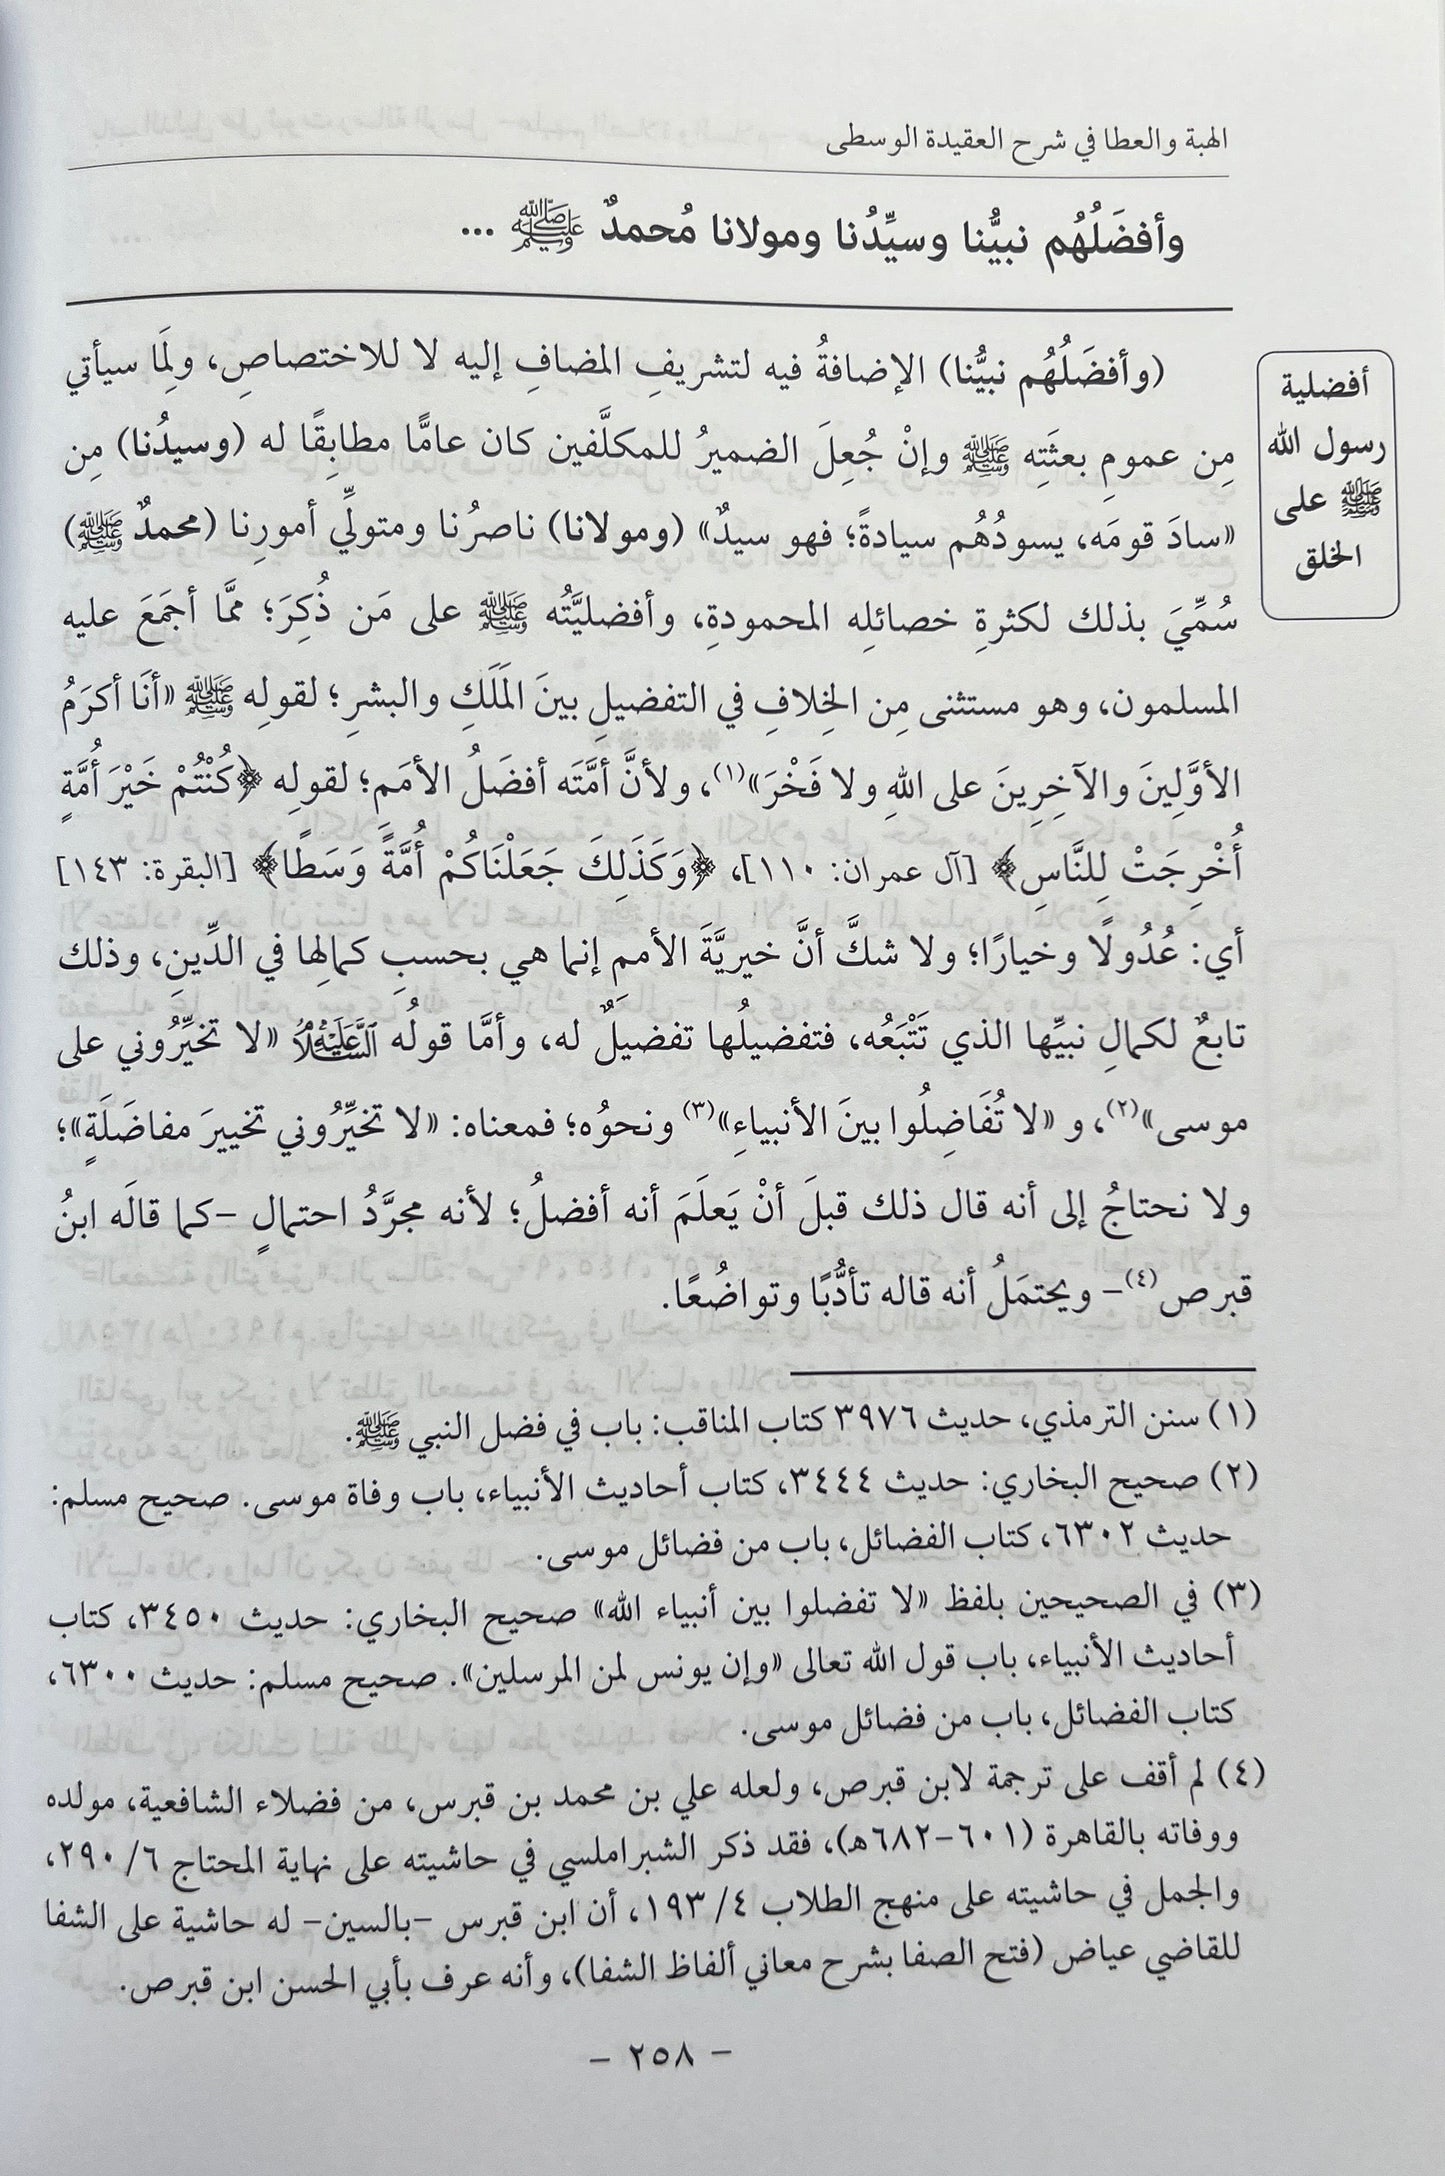 الهبة والعطا في شرح العقيدة الوسطى
وأفضَلُهُم نبيُّنا وسيِّدُنا ومولانا مُحمدٌ ﷺ ...
أفضلية
رسول الله
ﷺ على
الخلق
(وأفضَلُهُم نبيُّنا) الإضافةُ فيه لتشريفِ المضافِ إليه لا للاختصاصِ، ولِمَا سيأتي
مِن عمومِ بعثَتِه ﷺ وإنْ جُعِلَ الضميرُ للمكلَّفين كان عامًّا مطابِقًا له (وسيدُنا) مِن
«سادَ قومَه، يسودُهُم سيادةً؛ فهو سيدٌ» (ومولانا) ناصرُنا ومتولِّي أمورِنا (محمدٌ ﷺ)
سُمِّيَ بذلك لكثرةِ خصائلِه المحمودةِ، وأفضليَّتُه ﷺ على مَن ذُكِرَ؛ ممَّا أجمَعَ عليه
المسلمون، وهو مستثنى مِن الخِلافِ في التفضيلِ بينَ المَلَكِ والبشرِ؛ لقولِه ﷺ «أنَا أكرَمُ
الأوَّلِينَ والآخِرِينَ على اللهِ ولا فَخْرَ»(١)، ولأنَّ أمَّتَه أفضَلُ الأمَم؛ لقولِه ﴿كُنْتُمْ خَيْرَ أُمَّةٍ
أُخْرِجَتْ لِلنَّاسِ﴾ [آل عمران: ١١٠]، ﴿وَكَذَلِكَ جَعَلْنَاكُمْ أُمَّةً وَسَطًا﴾ [البقرة: ١٤٣]
أي: عُدُولًا وخيارًا؛ ولا شكَّ أنَّ خيريَّةَ الأمم إنما هي بحسبِ كمالِها في الدِّينِ، وذلك
تابعٌ لكمالِ نبيِّها الذي تَتْبَعُه، فتفضيلُها تفضيلٌ له، وأمَّا قولُه عَلَيْهِ السَّلَامُ «لا تخيِّرُوني على
موسى»(٢)، و «لا تُفَاضِلُوا بينَ الأنبياءِ»(٣) ونحوُه؛ فمعناه: «لا تخيِّرُوني تخييرَ مفاضَلَةٍ»؛
ولا نحتاجُ إلى أنه قال ذلك قبلَ أنْ يَعلَمَ أنه أفضلُ؛ لأنه مجرَّدُ احتمالٍ –كما قالَه ابنُ
قبرص(٤)– ويحتمَلُ أنه قاله تأدُّبًا وتواضُعًا.
(١) سنن الترمذي، حديث ٣٩٧٦ كتاب المناقب: باب في فضل النبي ﷺ.
(٢) صحيح البخاري: حديث ٣٤٤٤، كتاب أحاديث الأنبياء، باب وفاة موسى. صحيح مسلم:
حديث ٦٣٠٢، كتاب الفضائل، باب من فضائل موسى.
(٣) في الصحيحين بلفظ «لا تفضلوا بين أنبياء الله» صحيح البخاري: حديث ٣٤٥٠، كتاب
أحاديث الأنبياء، باب قول الله تعالى «وإن يونس لمن المرسلين». صحيح مسلم: حديث ٦٣٠٠،
كتاب الفضائل، باب من فضائل موسى.
(٤) لم أقف على ترجمة لابن قبرص، ولعله علي بن محمد بن قبرس، من فضلاء الشافعية، مولده
ووفاته بالقاهرة (٦٠١–٦٨٢هـ)، فقد ذكر الشبراملسي في حاشيته على نهاية المحتاج ٦/ ٢٩٠،
والجمل في حاشيته على منهج الطلاب ٤/ ١٩٣، أن ابن قبرس –بالسين– له حاشية على الشفا
للقاضي عياض (فتح الصفا بشرح معاني ألفاظ الشفا)، وأنه عرف بأبي الحسن ابن قبرص.
– ٢٥٨ –